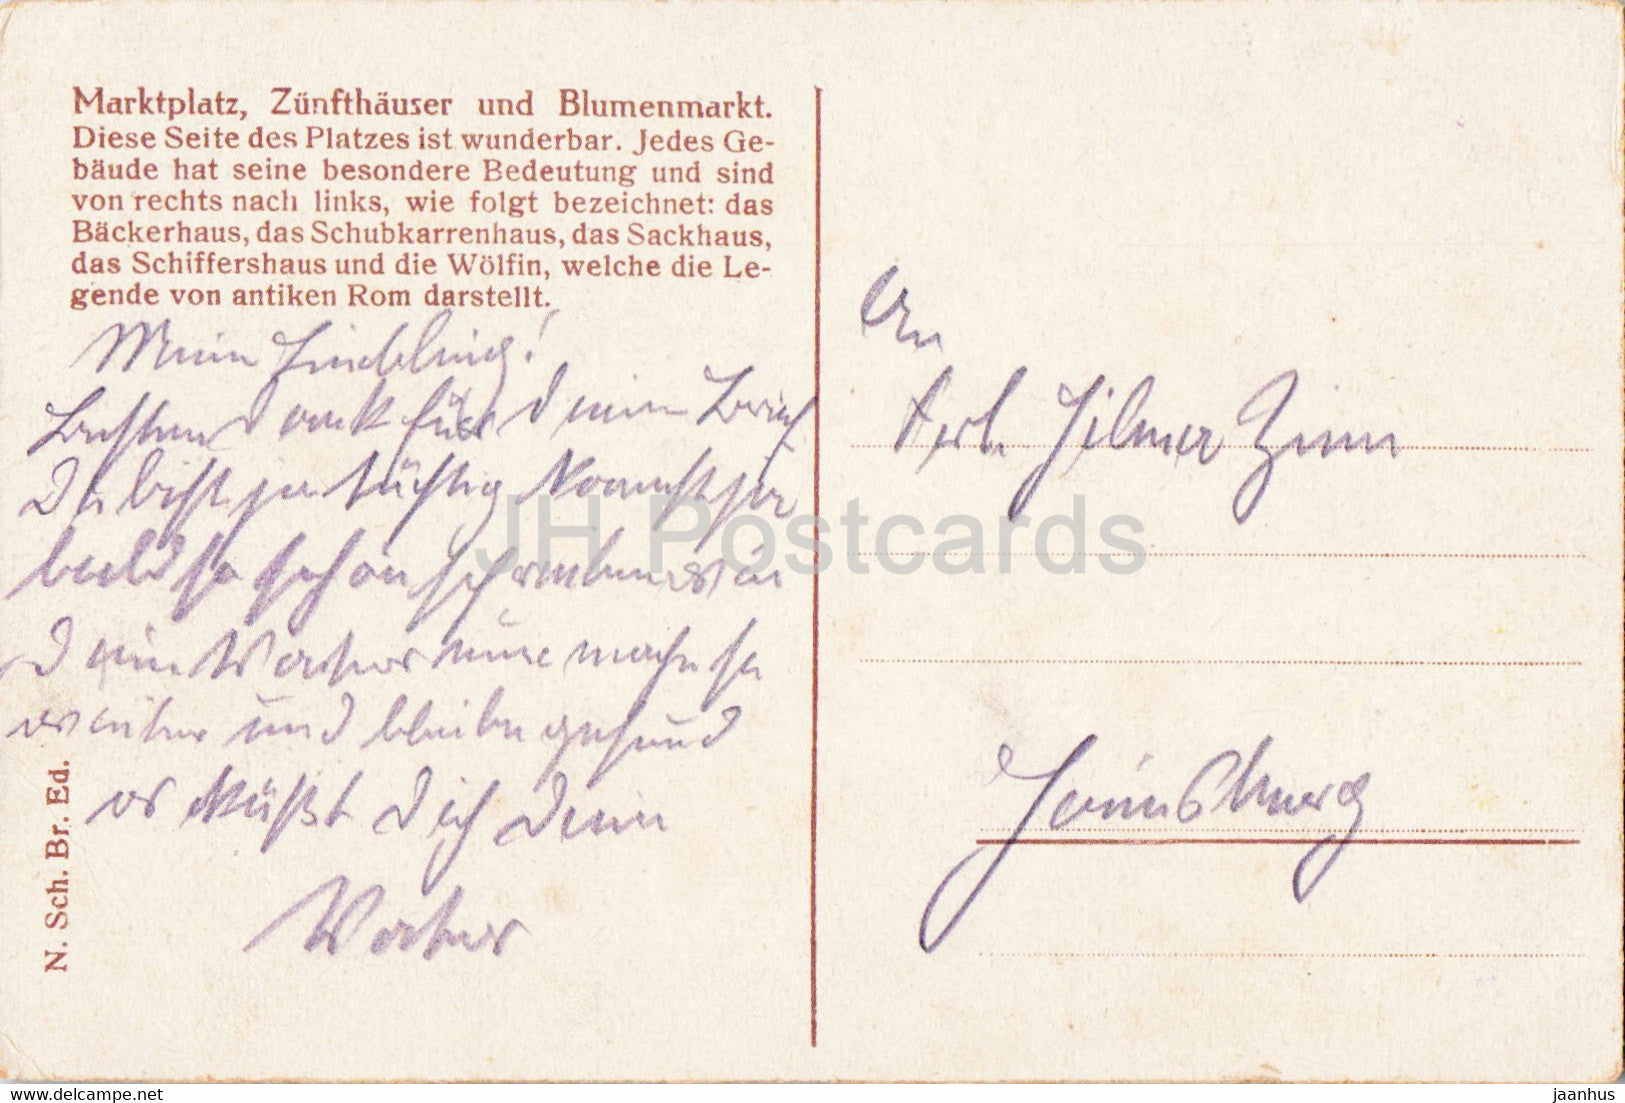 Marktplatz, Zünfthäuser und Blumenmarkt.
Diese Seite des Platzes ist wunderbar. Jedes Ge-
bäude hat seine besondere Bedeutung und sind
von rechts nach links, wie folgt bezeichnet: das
Bäckerhaus, das Schubkarrenhaus, das Sackhaus,
das Schiffershaus und die Wölfin, welche die Le-
gende von antiken Rom darstellt.
Mein Liebling!
Besten Dank für Deinen Brief
Du bist ja tüchtig kannst ja
bald so schön schreiben wie
Dein Vater nur mach so
weiter und bleibe gesund
es küßt Dich Dein
Vater
N. Sch. Br. Ed.
An
Frl. Hilma Zinn
Hainsberg
JH Postcards
www.delcampe.net
jaanhus